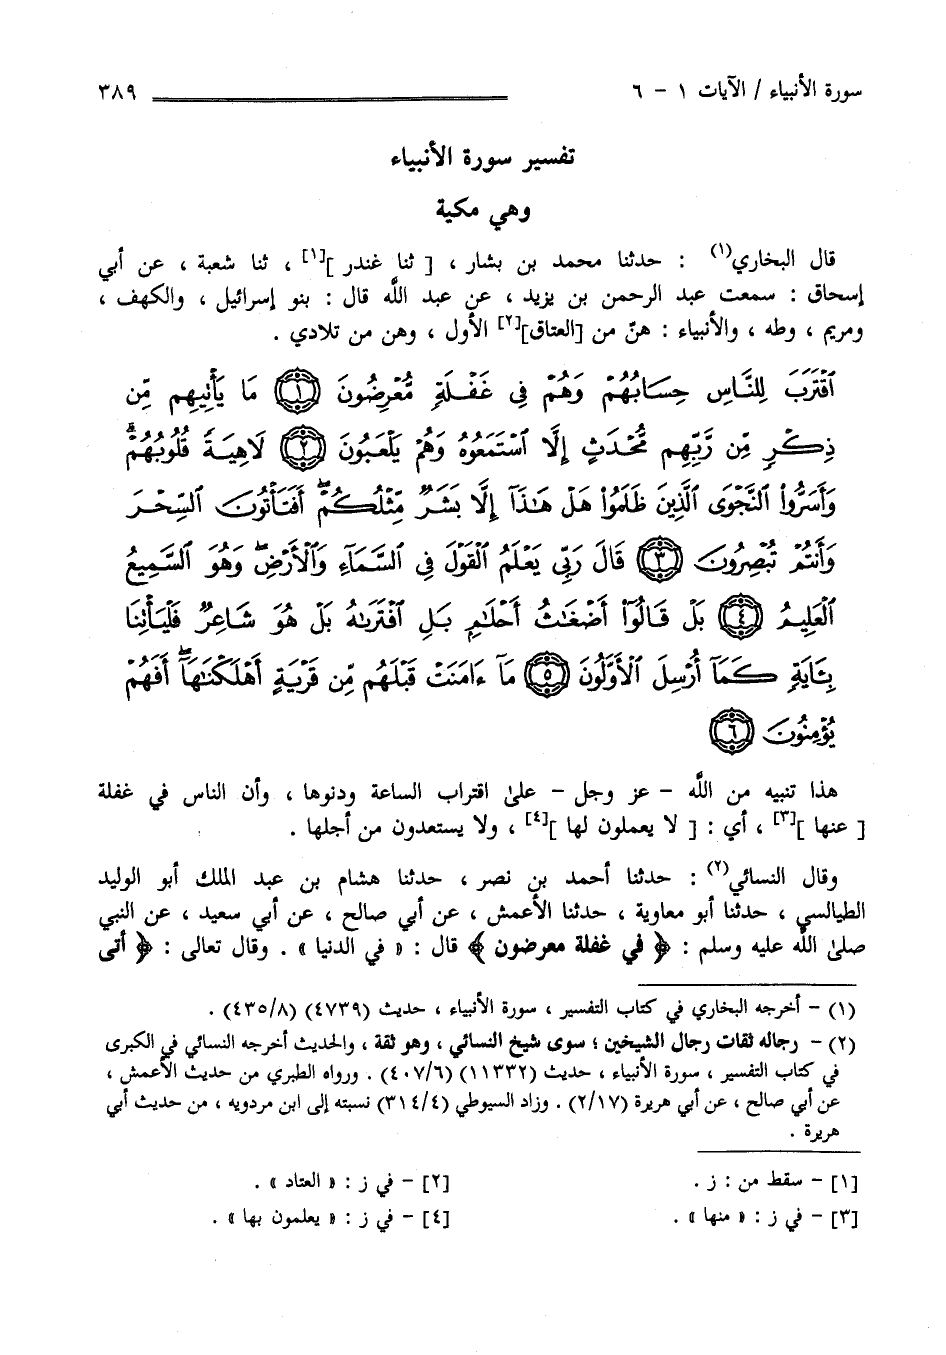 سورة الأنبياء / الآيات ١ - ٦ ٣٨٩
تفسير سورة الأنبياء
وهي مكية
قال البخاري(١) : حدثنا محمد بن بشار ، [ ثنا غندر ][١] ، ثنا شعبة ، عن أبي
إسحاق : سمعت عبد الرحمن بن يزيد ، عن عبد اللَّه قال : بنو إسرائيل ، والكهف ،
ومريم ، وطه ، والأنبياء : هنّ من [العتاق][٢] الأول ، وهن من تلادي .
ٱقْتَرَبَ لِلنَّاسِ حِسَابُهُمْ وَهُمْ فِى غَفْلَةٍ مُّعْرِضُونَ ١ مَا يَأْتِيهِم مِّن
ذِكْرٍ مِّن رَّبِّهِم مُّحْدَثٍ إِلَّا ٱسْتَمَعُوهُ وَهُمْ يَلْعَبُونَ ٢ لَاهِيَةً قُلُوبُهُمْ ۗ
وَأَسَرُّوا۟ ٱلنَّجْوَى ٱلَّذِينَ ظَلَمُوا۟ هَلْ هَٰذَآ إِلَّا بَشَرٌ مِّثْلُكُمْ ۖ أَفَتَأْتُونَ ٱلسِّحْرَ
وَأَنتُمْ تُبْصِرُونَ ٣ قَالَ رَبِّى يَعْلَمُ ٱلْقَوْلَ فِى ٱلسَّمَآءِ وَٱلْأَرْضِ ۖ وَهُوَ ٱلسَّمِيعُ
ٱلْعَلِيمُ ٤ بَلْ قَالُوٓا۟ أَضْغَٰثُ أَحْلَٰمٍ بَلِ ٱفْتَرَىٰهُ بَلْ هُوَ شَاعِرٌ فَلْيَأْتِنَا
بِـَٔايَةٍ كَمَآ أُرْسِلَ ٱلْأَوَّلُونَ ٥ مَآ ءَامَنَتْ قَبْلَهُم مِّن قَرْيَةٍ أَهْلَكْنَٰهَآ ۖ أَفَهُمْ
يُؤْمِنُونَ ٦
هذا تنبيه من اللَّه - عز وجل - علىٰ اقتراب الساعة ودنوها ، وأن الناس في غفلة
[ عنها ][٣] ، أي : [ لا يعملون لها ][٤] ، ولا يستعدون من أجلها .
وقال النسائي(٢) : حدثنا أحمد بن نصر ، حدثنا هشام بن عبد الملك أبو الوليد
الطيالسي ، حدثنا أبو معاوية ، حدثنا الأعمش ، عن أبي صالح ، عن أبي سعيد ، عن النبي
صلىٰ اللَّه عليه وسلم : ﴿ في غفلة معرضون ﴾ قال : « في الدنيا » . وقال تعالى : ﴿ أتى
(١) - أخرجه البخاري في كتاب التفسير ، سورة الأنبياء ، حديث (٤٧٣٩) (٤٣٥/٨) .
(٢) - رجاله ثقات رجال الشيخين ؛ سوى شيخ النسائي ، وهو ثقة ، والحديث أخرجه النسائي في الكبرى
في كتاب التفسير ، سورة الأنبياء ، حديث (١١٣٣٢) (٤٠٧/٦) . ورواه الطبري من حديث الأعمش ،
عن أبي صالح ، عن أبي هريرة (٢/١٧) . وزاد السيوطي (٣١٤/٤) نسبته إلى ابن مردويه ، من حديث أبي
هريرة .
[١] - سقط من : ز . [٢] - في ز : « العتاد » .
[٣] - في ز : « منها » . [٤] - في ز : « يعلمون بها » .